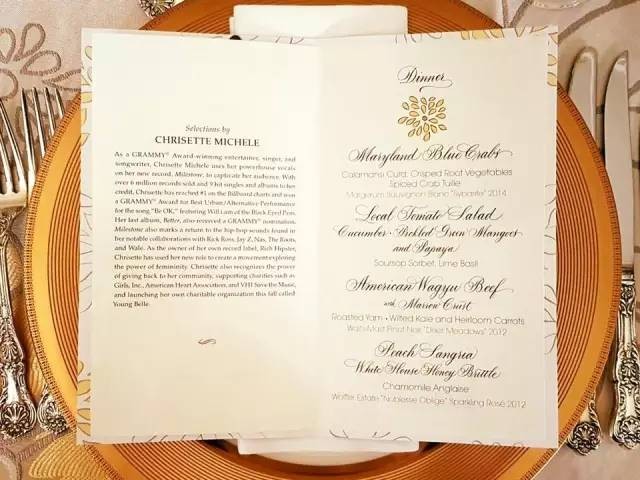 Selections by
CHRISETTE MICHELE
As a GRAMMY® Award-winning entertainer, singer, and
songwriter, Chrisette Michele uses her powerhouse vocals
on her new record, Milestone, to captivate her audience. With
over 6 million records sold and 9 hit singles and albums to her
credit, Chrisette has reached #1 on the Billboard charts and won
a GRAMMY® Award for Best Urban/Alternative Performance
for the song "Be OK," featuring Will.I.am of the Black Eyed Peas.
Her last album, Better, also received a GRAMMY® nomination.
Milestone also marks a return to the hip-hop sounds found in
her notable collaborations with Rick Ross, Jay Z, Nas, The Roots,
and Wale. As the owner of her own record label, Rich Hipster,
Chrisette has used her new role to create a movement exploring
the power of femininity. Chrisette also recognizes the power
of giving back to her community, supporting charities such as
Girls, Inc., American Heart Association, and VH1 Save the Music,
and launching her own charitable organization this fall called
Young Belle.
Dinner
Maryland Blue Crabs
Calamansi Curd • Crisped Root Vegetables
Spiced Crab Tuille
Margerum Sauvignon Blanc "Sybarite" 2014
Local Tomato Salad
Cucumber • Pickled Green Mangoes
and Papaya
Soursop Sorbet, Lime Basil
American Wagyu Beef
with Marrow Crust
Roasted Yam • Wilted Kale and Heirloom Carrots
WaltsMast Pinot Noir "Deer Meadows" 2012
Peach Sangria
White House Honey Brittle
Chamomile Anglaise
Wölffer Estate "Noblesse Oblige" Sparkling Rosé 2012